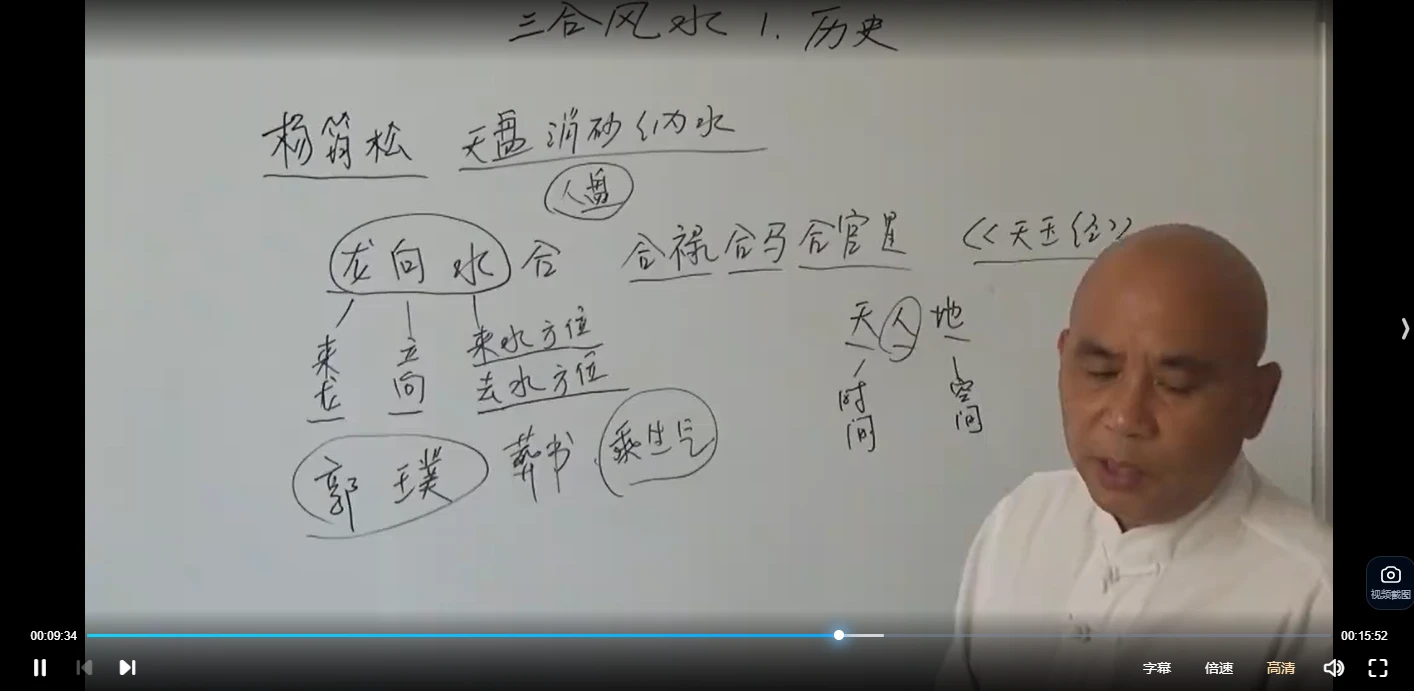 三合风水 1. 历史
杨筠松 天盘消砂纳水
人盘
龙向水合 合禄合马合官星 《天玉经》
天人地
来龙 立向 来水方位
去水方位
时间 空间
郭璞 葬书 乘生气
视频截图
00:09:34 00:15:52
字幕 倍速 高清